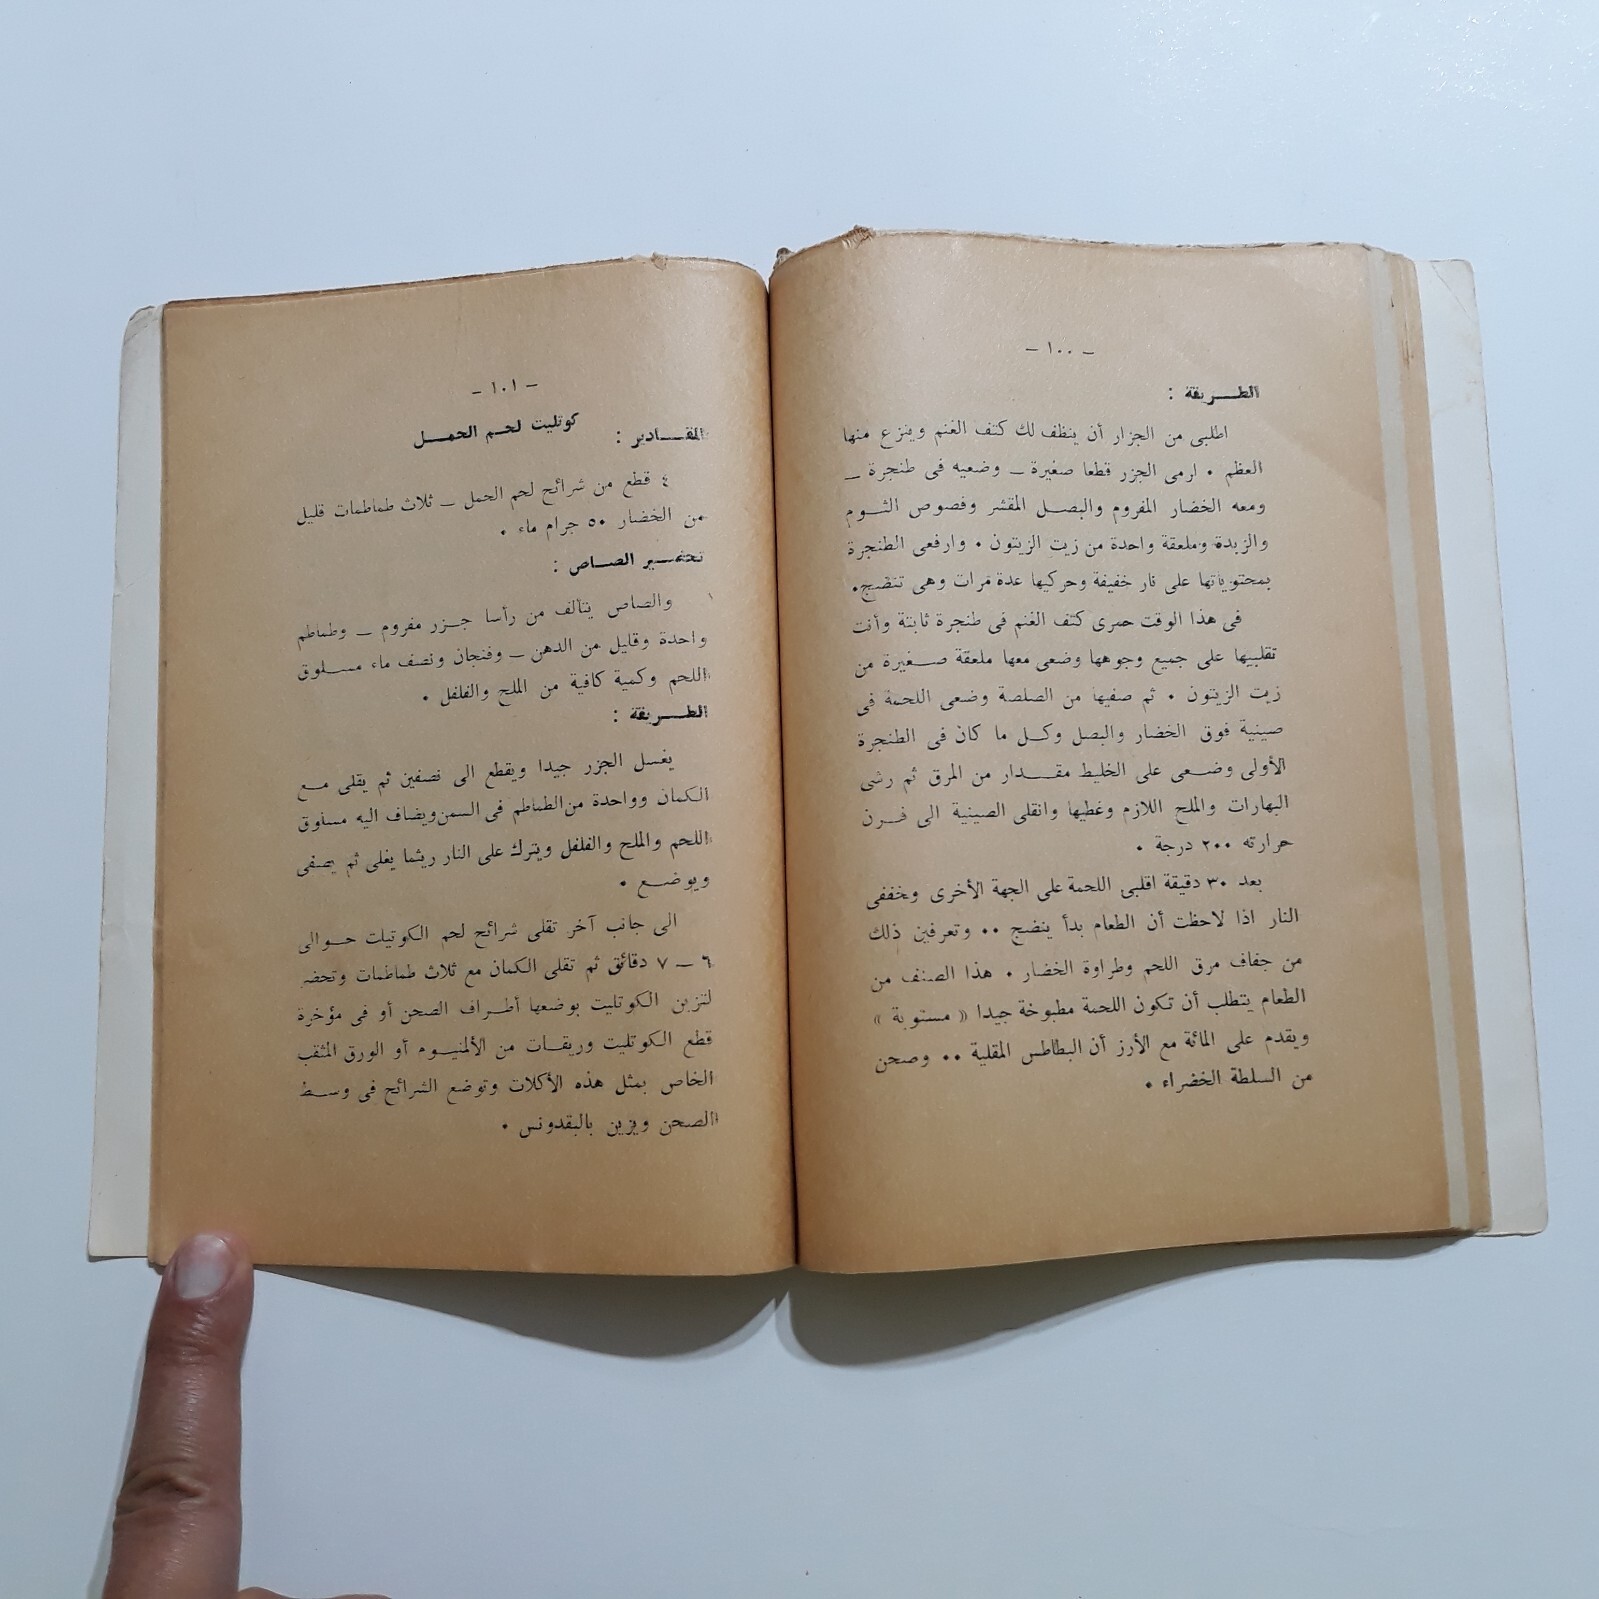 - ١٠٠ -
الطريقة :
اطلبى من الجزار أن ينظف لك كتف الغنم وينزع منها
العظم . ارمى الجزر قطعا صغيرة - وضعيه فى طنجرة -
ومعه الخضار المفروم والبصل المقشر وفصوص الثوم
والزبدة وملعقة واحدة من زيت الزيتون . وارفعى الطنجرة
بمحتوياتها على نار خفيفة وحركيها عدة مرات وهى تنضج .
فى هذا الوقت حمرى كتف الغنم فى طنجرة ثابتة وأنت
تقلبيها على جميع وجوهها وضعى معها ملعقة صغيرة من
زيت الزيتون . ثم صفيها من الصلصة وضعى اللحمة فى
صينية فوق الخضار والبصل وكل ما كان فى الطنجرة
الأولى وضعى على الخليط مقدار من المرق ثم رشى
البهارات والملح اللازم وغطيها وانقلى الصينية الى فرن
حرارته ٢٠٠ درجة .
بعد ٣٠ دقيقة اقلبى اللحمة على الجهة الأخرى وخففى
النار اذا لاحظت أن الطعام بدأ ينضج .. وتعرفين ذلك
من جفاف مرق اللحم وطراوة الخضار . هذا الصنف من
الطعام يتطلب أن تكون اللحمة مطبوخة جيدا « مستوية »
ويقدم على المائة مع الأرز أن البطاطس المقلية .. وصحن
من السلطة الخضراء .
- ١٠١ -
كوتليت لحم الحمل
المقادير :
٤ قطع من شرائح لحم الحمل - ثلاث طماطمات قليل
من الخضار ٥٠ جرام ماء .
تحضير الصاص :
والصاص يتألف من رأسا جزر مفروم - وطماطم
واحدة وقليل من الدهن - وفنجان ونصف ماء مسلوق
اللحم وكمية كافية من الملح والفلفل .
الطريقة :
يغسل الجزر جيدا ويقطع الى نصفين ثم يقلى مع
الكمان وواحدة من الطماطم فى السمن ويضاف اليه مسلوق
اللحم والملح والفلفل ويترك على النار ريثما يغلى ثم يصفى
ويوضع .
الى جانب آخر تقلى شرائح لحم الكوتيلت حوالى
٦ - ٧ دقائق ثم تقلى الكمان مع ثلاث طماطمات وتحضر
لتزين الكوتليت بوضعها أطراف الصحن أو فى مؤخرة
قطع الكوتليت وريقات من الألمنيوم أو الورق المثقب
الخاص بمثل هذه الأكلات وتوضع الشرائح فى وسط
الصحن ويزين بالبقدونس .